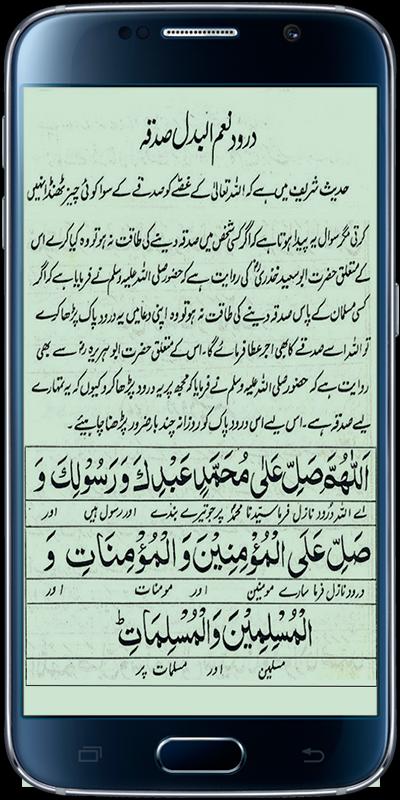 درود نعم البدل صدقہ
حدیث شریف میں ہے کہ اللہ تعالیٰ کے غصّے کو صدقے کے سوا کوئی چیز ٹھنڈا نہیں
کرتی مگر سوال یہ پیدا ہوتا ہے کہ اگر کسی شخص میں صدقہ دینے کی طاقت نہ ہو تو وہ کیا کرے اس
کے متعلق حضرت ابو سعید خذریؓ کی روایت ہے کہ حضور صلی اللہ علیہ وسلم نے فرمایا ہے کہ اگر
کسی مسلمان کے پاس صدقہ دینے کی طاقت نہ ہو تو وہ اپنی دعا میں یہ درود پاک پڑھا کرے
تو اللہ اسے صدقے کا بھی اجر عطا فرمائے گا۔ اس کے متعلق حضرت ابو ہریرہ رضؓ سے بھی
روایت ہے کہ حضور صلی اللہ علیہ وسلم نے فرمایا کہ مجھ پر یہ درود پڑھا کرو کیوں کہ یہ تمہارے
لیے صدقہ ہے۔ اس لیے اس درود پاک کو روزانہ چند بار ضرور پڑھنا چاہیئے۔
اَللّٰهُمَّ صَلِّ عَلٰى مُحَمَّدٍ عَبْدِكَ وَ رَسُوْلِكَ وَ
اے اللہ درود نازل فرما سیدنا محمدؐ پر جو تیرے بندے اور رسول ہیں اور
صَلِّ عَلَى الْمُؤْمِنِيْنَ وَ الْمُؤْمِنَاتِ وَ
درود نازل فرما سارے مومنین اور مومنات اور
الْمُسْلِمِيْنَ وَالْمُسْلِمَاتِ ؕ
مسلمین اور مسلمات پر